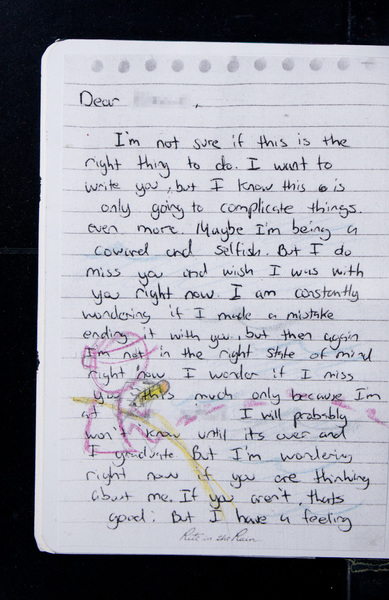 Dear ,
I'm not sure if this is the
right thing to do. I want to
write you, but I know this is
only going to complicate things.
even more. Maybe I'm being a
coward and selfish. But I do
miss you and wish I was with
you right now. I am constantly
wondering if I made a mistake
ending it with you, but then again
I'm not in the right state of mind
right now I wonder if I miss
you this much only because I'm
at I will probably
won't know until its over and
I graduate But I'm wondering
right now if you are thinking
about me. If you aren't, thats
good. But I have a feeling
Rite in the Rain